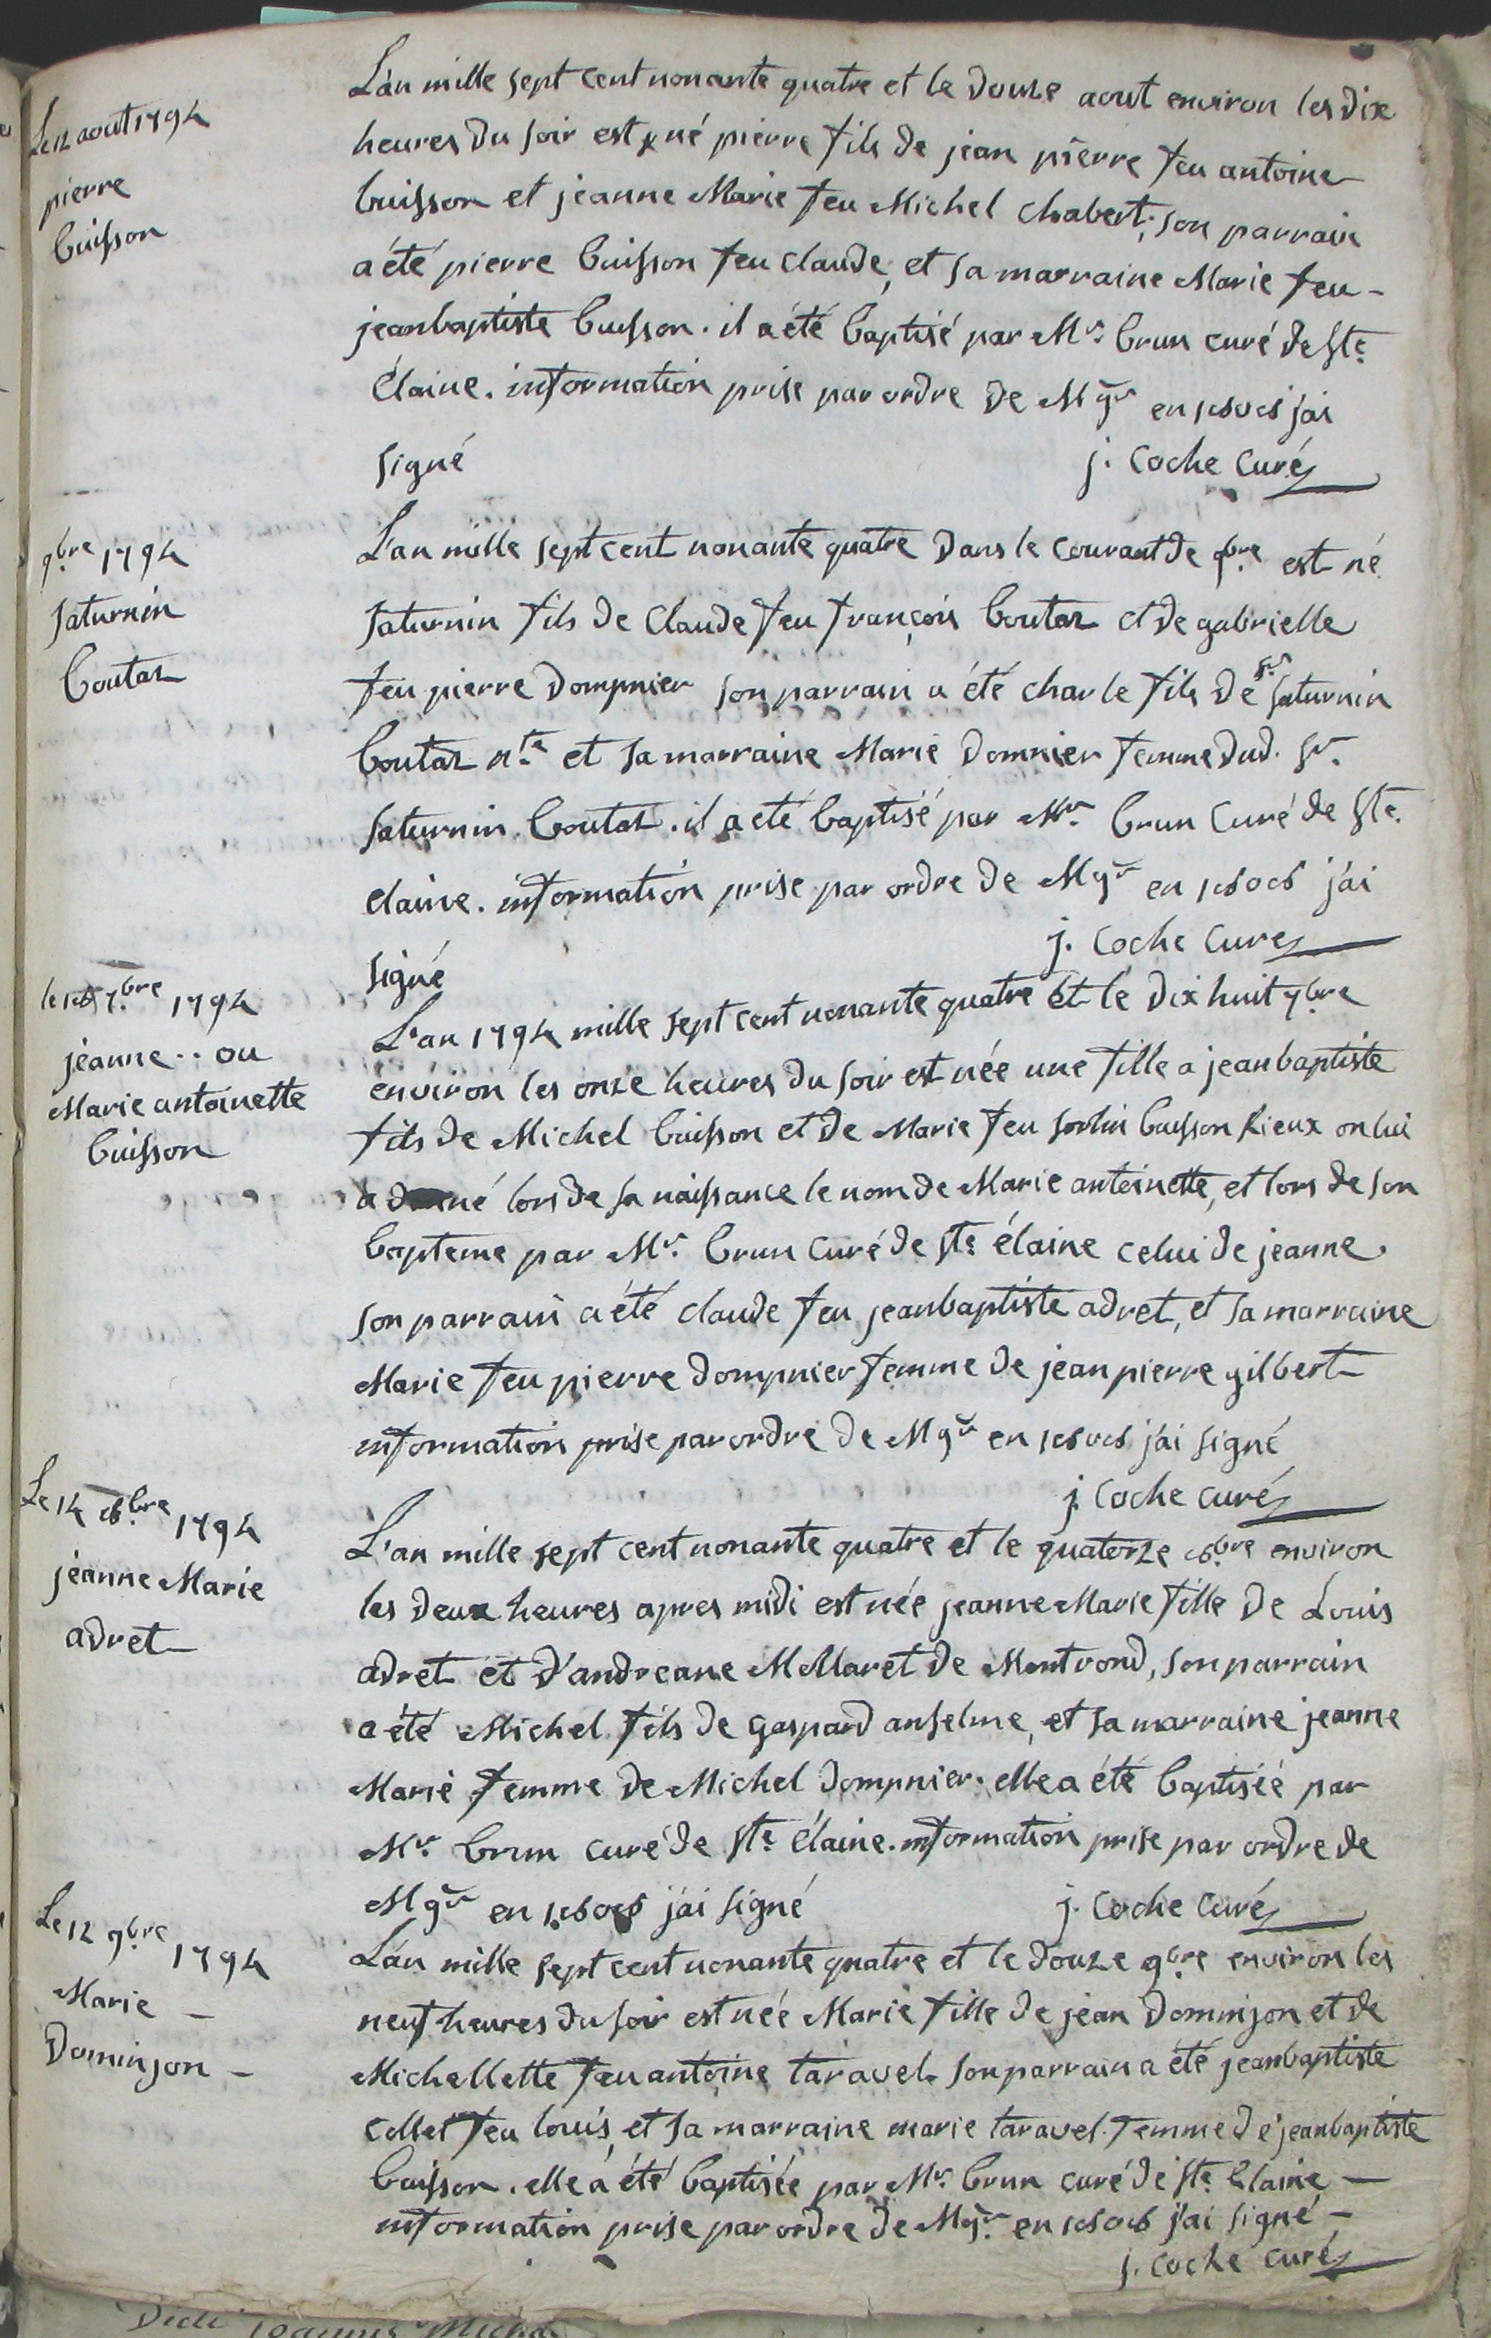 Le 12 aout 1794
pierre
buisson
L'an mille sept cent nonante quatre et le douze aout environ les dix
heures du soir est né pierre fils de jean pierre feu antoine
buisson et jeanne Marie feu Michel chabert, son parrain
a été pierre buisson feu claude, et sa marraine Marie feu -
jeanbaptiste buisson. il a été baptisé par Mr. brun curé de Ste
élaine. information prise par ordre de Mgr en 1808 j'ai
signé j. Coche Curé
9bre 1794
Saturnin
boutaz
L'an mille sept cent nonante quatre dans le courant de 9bre est né
Saturnin fils de Claude feu françois boutaz et de gabrielle
feu pierre dompnier son parrain a été charle fils de Sr Saturnin
boutaz nre et sa marraine Marie domnier femme dud. Sr.
Saturnin boutaz. il a été baptisé par Mr. brun Curé de Ste.
elaine. information prise par ordre de Mgr en 1808 j'ai
signé j. Coche Curé
le 18 7bre 1794
jeanne .. ou
Marie antoinette
buisson
L'an 1794 mille sept cent nonante quatre et le dix huit 7bre
environ les onze heures du soir est née une fille a jeanbaptiste
fils de Michel buisson et de Marie feu sorlin buisson Rieux on lui
a donné lors de sa naissance le nom de Marie antoinette, et lors de son
bapteme par Mr. brun Curé de Ste élaine celui de jeanne.
son parrain a été claude feu jeanbaptiste adret, et sa marraine
Marie feu pierre dompnier femme de jean pierre gilbert
information prise par ordre de Mgr en 1808 j'ai signé
j. Coche curé
Le 14 8bre 1794
jeanne Marie
adret
L'an mille sept cent nonante quatre et le quatorze 8bre environ
les deux heures apres midi est née jeanne Marie fille de Louis
adret et d'andreane Mollaret de Montrond, son parrain
a été Michel fils de Gaspard anselme, et sa marraine jeanne
Marie femme de Michel dompnier. elle a été baptisée par
Mr. brun curé de Ste élaine. information prise par ordre de
Mgr en 1808 j'ai signé j. Coche Curé
Le 12 9bre 1794
Marie -
Dominjon -
L'an mille sept cent nonante quatre et le douze 9bre environ les
neuf heures du soir est née Marie fille de jean dominjon et de
Michellette feu antoine taravel. son parrain a été jeanbaptiste
collet feu louis, et sa marraine marie taravel femme de jeanbaptiste
buisson. elle a été baptisée par Mr. brun curé de Ste Elaine -
information prise par ordre de Mgr. en 1808 j'ai signé -
j. Coche curé